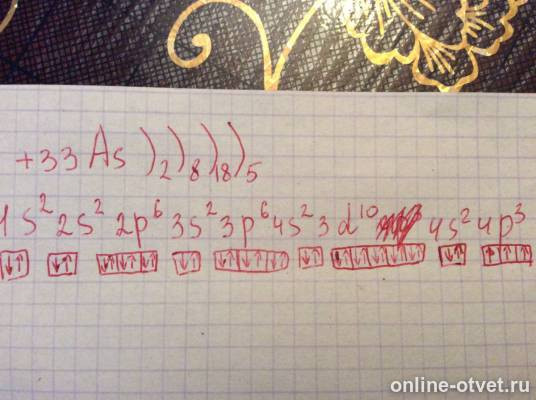 +33 As )2 )8 )18 )5
1s² 2s² 2p⁶ 3s² 3p⁶ 4s² 3d¹⁰ 4s² 4p³
online-otvet.ru